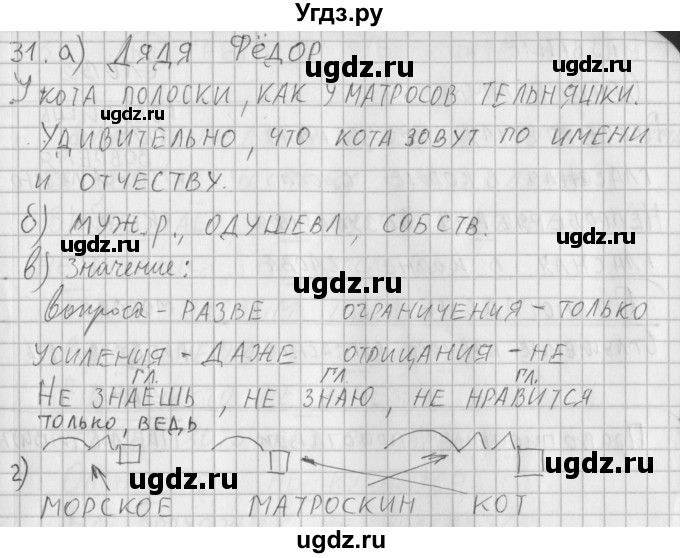 Угдз.ру
31. а) ДЯДЯ ФЁДОР
У КОТА ПОЛОСКИ, КАК У МАТРОСОВ ТЕЛЬНЯШКИ.
УДИВИТЕЛЬНО, ЧТО КОТА ЗОВУТ ПО ИМЕНИ
И ОТЧЕСТВУ.
б) МУЖ.Р., ОДУШЕВЛ, СОБСТВ.
в) Значение:
вопроса - РАЗВЕ ОГРАНИЧЕНИЯ - ТОЛЬКО
УСИЛЕНИЯ - ДАЖЕ ОТРИЦАНИЯ - НЕ
ГЛ. ГЛ ГЛ.
НЕ ЗНАЕШЬ, НЕ ЗНАЮ, НЕ НРАВИТСЯ
ТОЛЬКО, ВЕДЬ
г)
МОРСКОЕ МАТРОСКИН КОТ
ugdz.ru
ugdz.ru
ugdz.ru
ugdz.ru
ugdz.ru
ugdz.ru
ugdz.ru
ugdz.ru
ugdz.ru
ugdz.ru
ugdz.ru
ugdz.ru
ugdz.ru